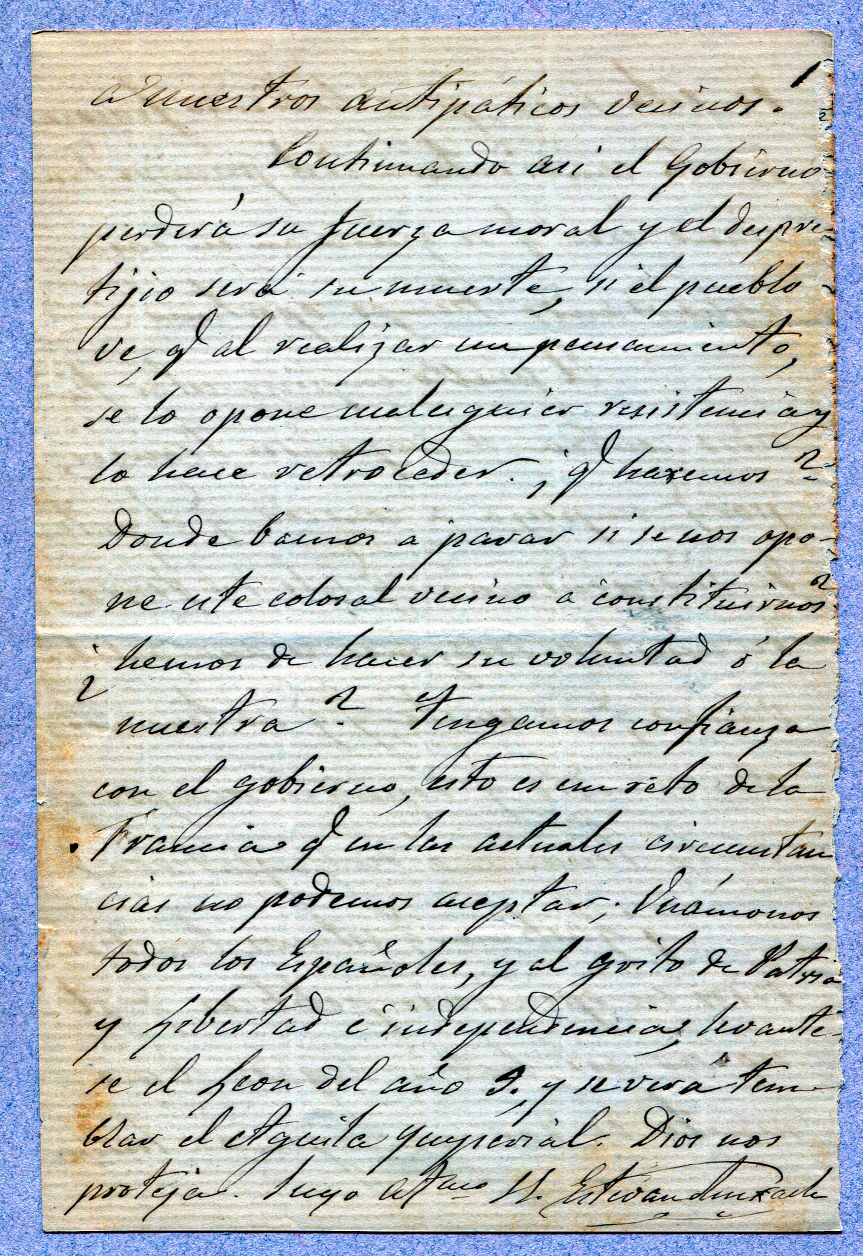 a nuestros antipáticos vecinos.
Continuando asi el Gobierno
perderá su fuerza moral y el despre-
tijio será su muerte, si el pueblo
ve, q̃ al realizar un pensamiento,
se lo opone cualesquier resistencia y
lo hace retroceder. ¿ q̃ haremos?
Donde bamos a parar si se nos opo-
ne este colosal vecino a constituirnos?
¿ hemos de hacer su voluntad ó la
nuestra? Tengamos confianza
con el gobierno, esto es un reto de la
Francia q̃ en las actuales circunstan
cias no podemos aceptar; Unámonos
todos los Españoles, y al grito de Patria
y Libertad e independencia, levante-
se el Leon del año 9, y se verá tem
blar el Aguila Ymperial. Dios nos
proteja. Suyo at.mo S. Estevan